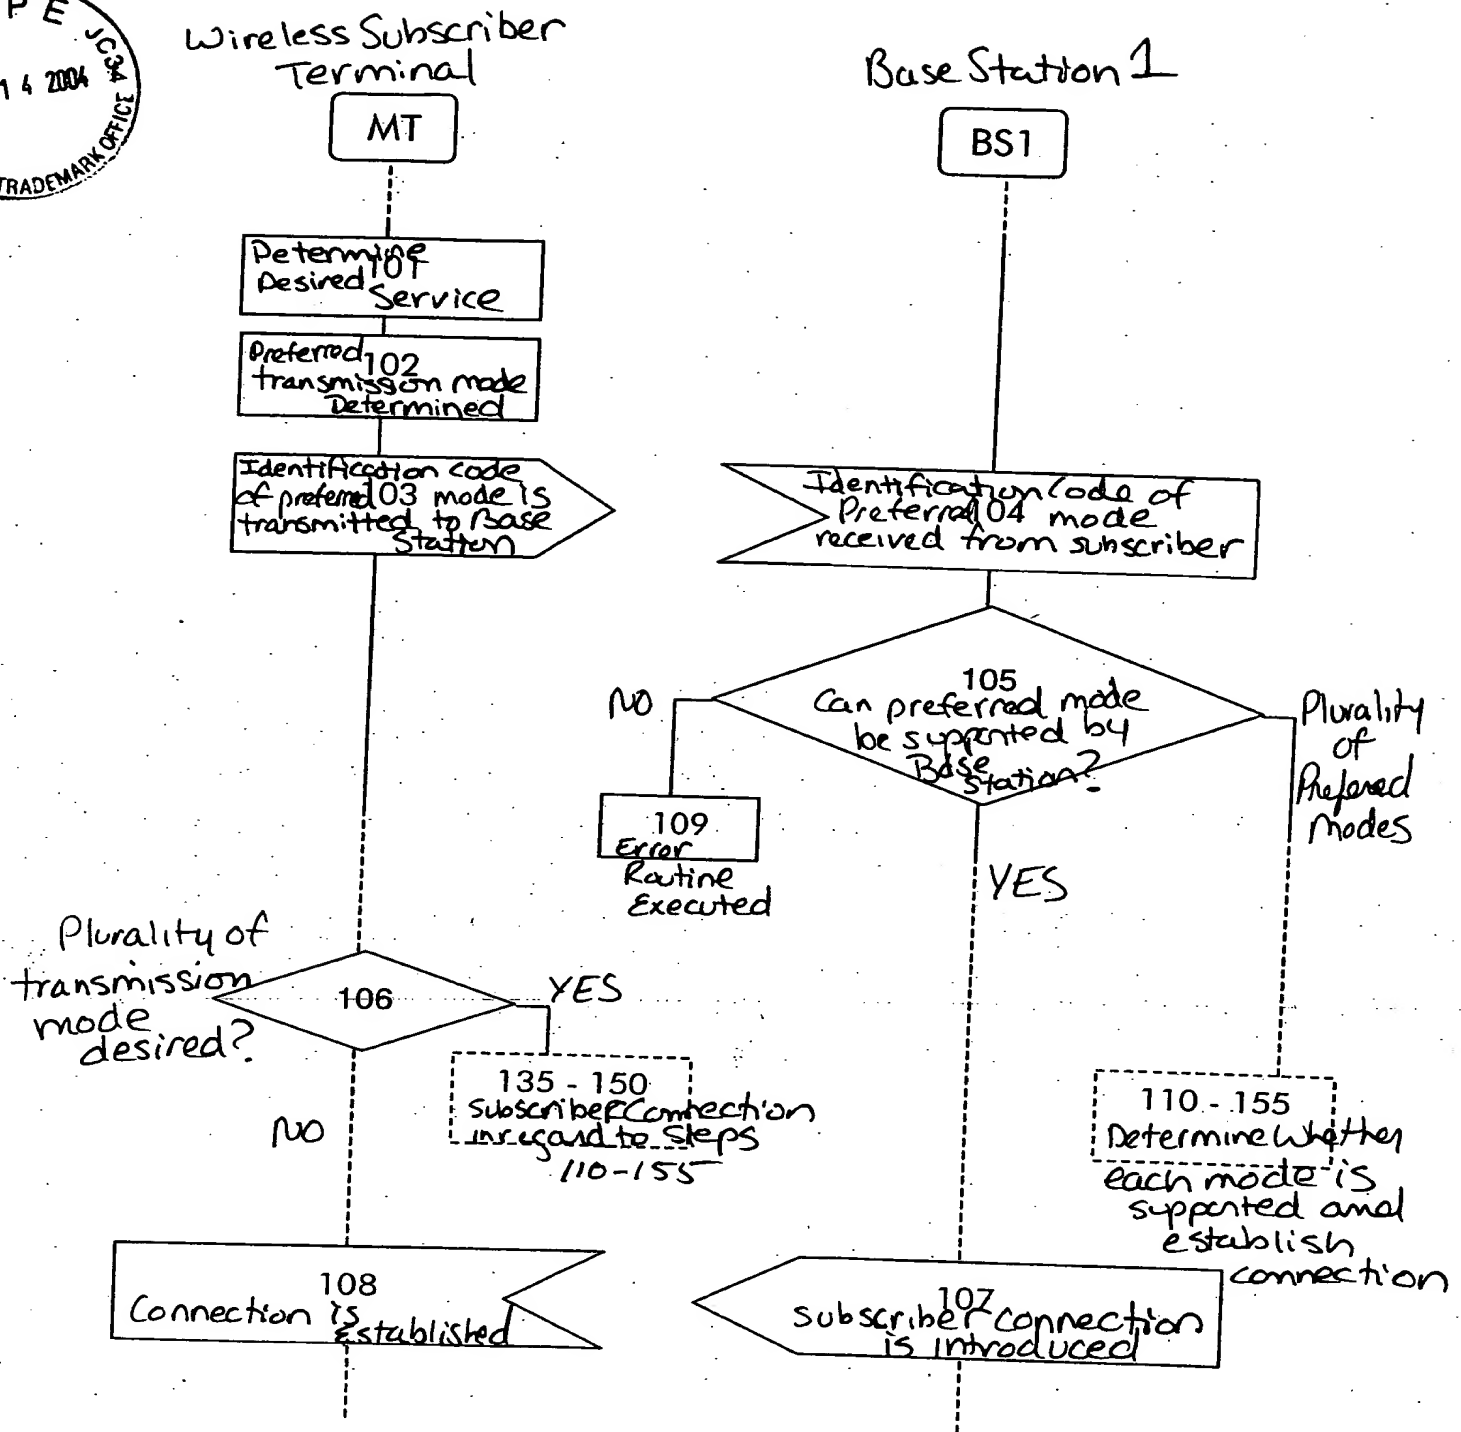 P E JC34
14 2004
TRADEMARK OFFICE
Wireless Subscriber
Terminal
MT
Base Station 1
BS1
Determine
101
Desired
Service
Preferred
102
transmission mode
Determined
Identification code
of preferred 103 mode is
transmitted to Base
Station
Identification Code of
Preferred 104 mode
received from subscriber
105
Can preferred mode
be supported by
Base
Station?
NO
109
Error
Routine
Executed
YES
Plurality
of
Prefered
Modes
Plurality of
transmission
mode
desired?
106
YES
135 - 150
Subscriber Connection
in regard to steps
110-155
NO
110 - 155
Determine Whether
each mode is
supported and
establish
connection
108
Connection is
Established
107
Subscriber connection
is introduced